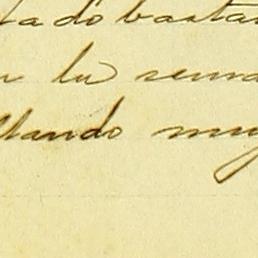 tado basta
n la sema
llando muy